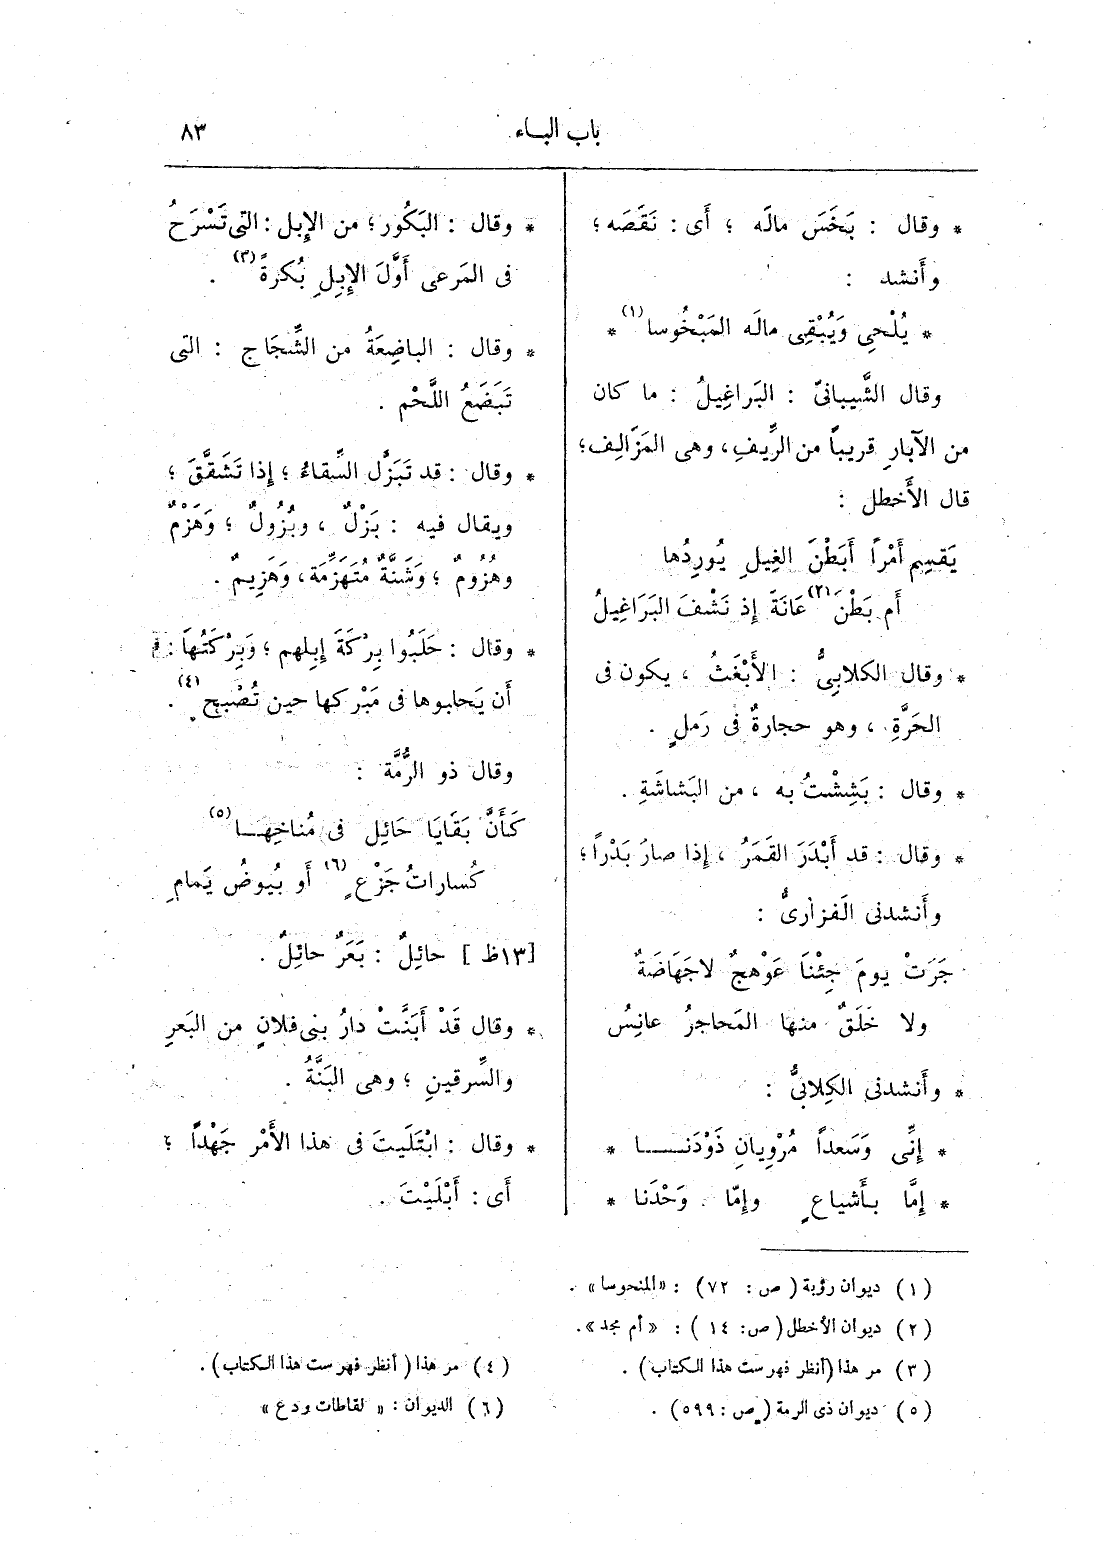 باب البـاء
٨٣
* وقال : بَخَسَ مالَه ؛ أَى : نَقَصَه ؛
وأَنشد :
* يُلْحِى وَيُبْقِى مالَه المَبْخُوسا(١) *
وقال الشَّيبانىّ : البَراغِيلُ : ما كان
من الآبارِ قريباً من الرِّيفِ، وهى المَزَالِف؛
قال الأَخطل :
يَقسِم أَمْراً أَبَطْنَ الغِيلِ يُورِدُها
أم بَطْنَ(٢) عَانَةَ إذ نَشْفَ البَرَاغِيلُ
* وقال الكلابِىُّ : الأَبْغَثُ ، يكون فى
الحَرَّةِ ، وهو حجارةٌ فى رَملٍ .
* وقال : بَشِشْتُ به ، من البَشاشَةِ .
* وقال : قد أَبْدَرَ القَمَرُ ، إذا صارَ بَدْراً ؛
وأَنشدنى الفَزارىُّ :
جَرَتْ يومَ جِئْنَا عَوْهجٌ لاجَهَاضَةٌ
ولا خَلَقٌ منها المَحاجرُ عانِسُ
* وأَنشدنى الكِلابىُّ :
* إنِّى وَسَعداً مُرْوِيانِ ذَوْدَنـــا *
* إمَّا بـأَشياعٍ وإمّا وَحْدَنا *
* وقال : البَكُور ؛ من الإِبل : التى تَسْرَحُ
فى المَرعى أَوَّلَ الإِبلِ بُكرةً(٣) .
* وقال : الباضِعَةُ من الشِّجَاج : التى
تَبَضَعُ اللَّحْم .
* وقال : قد تَبَزَّل السِّقاءُ ؛ إذا تَشَقَّقَ ؛
ويقال فيه : بَزْلٌ ، وبُزُولٌ ؛ وَهَزْمٌ
وهُزُومٌ ؛ وَشَنَّةٌ مُتَهَزِّمَة، وَهَزِيمٌ .
* وقال : حَلَبُوا بِرْكَةَ إِبلهم ؛ وَبِرْكَتُهاَ :
أَن يَحلبوها فى مَبْركها حين تُصْبِح(٤) .
وقال ذو الرُّمَّة :
كَأَنَّ بَقَايَا حَائِل فى مُناخِهَـا(٥)
كُسارَاتُ جَزْعٍ(٦) أَو بُيوضُ يَمامِ
[١٣ظ] حائِلٌ : بَعَرٌ حائِلٌ .
* وقال قَدْ أَبَنَّتْ دارُ بنى فلانٍ من البَعرِ
والسِّرقينِ ؛ وهى البَنَّةُ .
* وقال : ابْتَلَيتَ فى هذا الأَمْر جَهْداً ؛
أَى : أَبْلَيْتَ .
(١) ديوان رؤبة ( ص : ٧٢ ) : «المنحوسا» .
(٢) ديوان الأخطل ( ص: ١٤ ) : « أم مجد ».
(٣) مر هذا (أنظر فهرست هذا الكتاب) .
(٤) مر هذا ( أنظر فهرست هذا الكتاب) .
(٥) ديوان ذى الرمة (ص : ٥٩٩) .
(٦) الديوان : « لقاطات ودع »